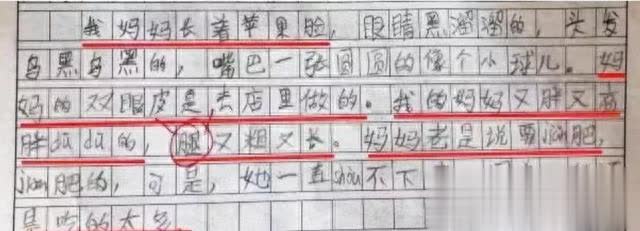 我妈妈长着苹果脸，眼睛黑溜溜的，头发
乌黑乌黑的，嘴巴一张圆圆的像个小球儿。妈
妈的双眼皮是去店里做的。我的妈妈又胖又高
胖dū dū的，腿又粗又长。妈妈老是说要jiǎn肥，
jiǎn肥的，可是，她一直shòu不下
是吃的太多